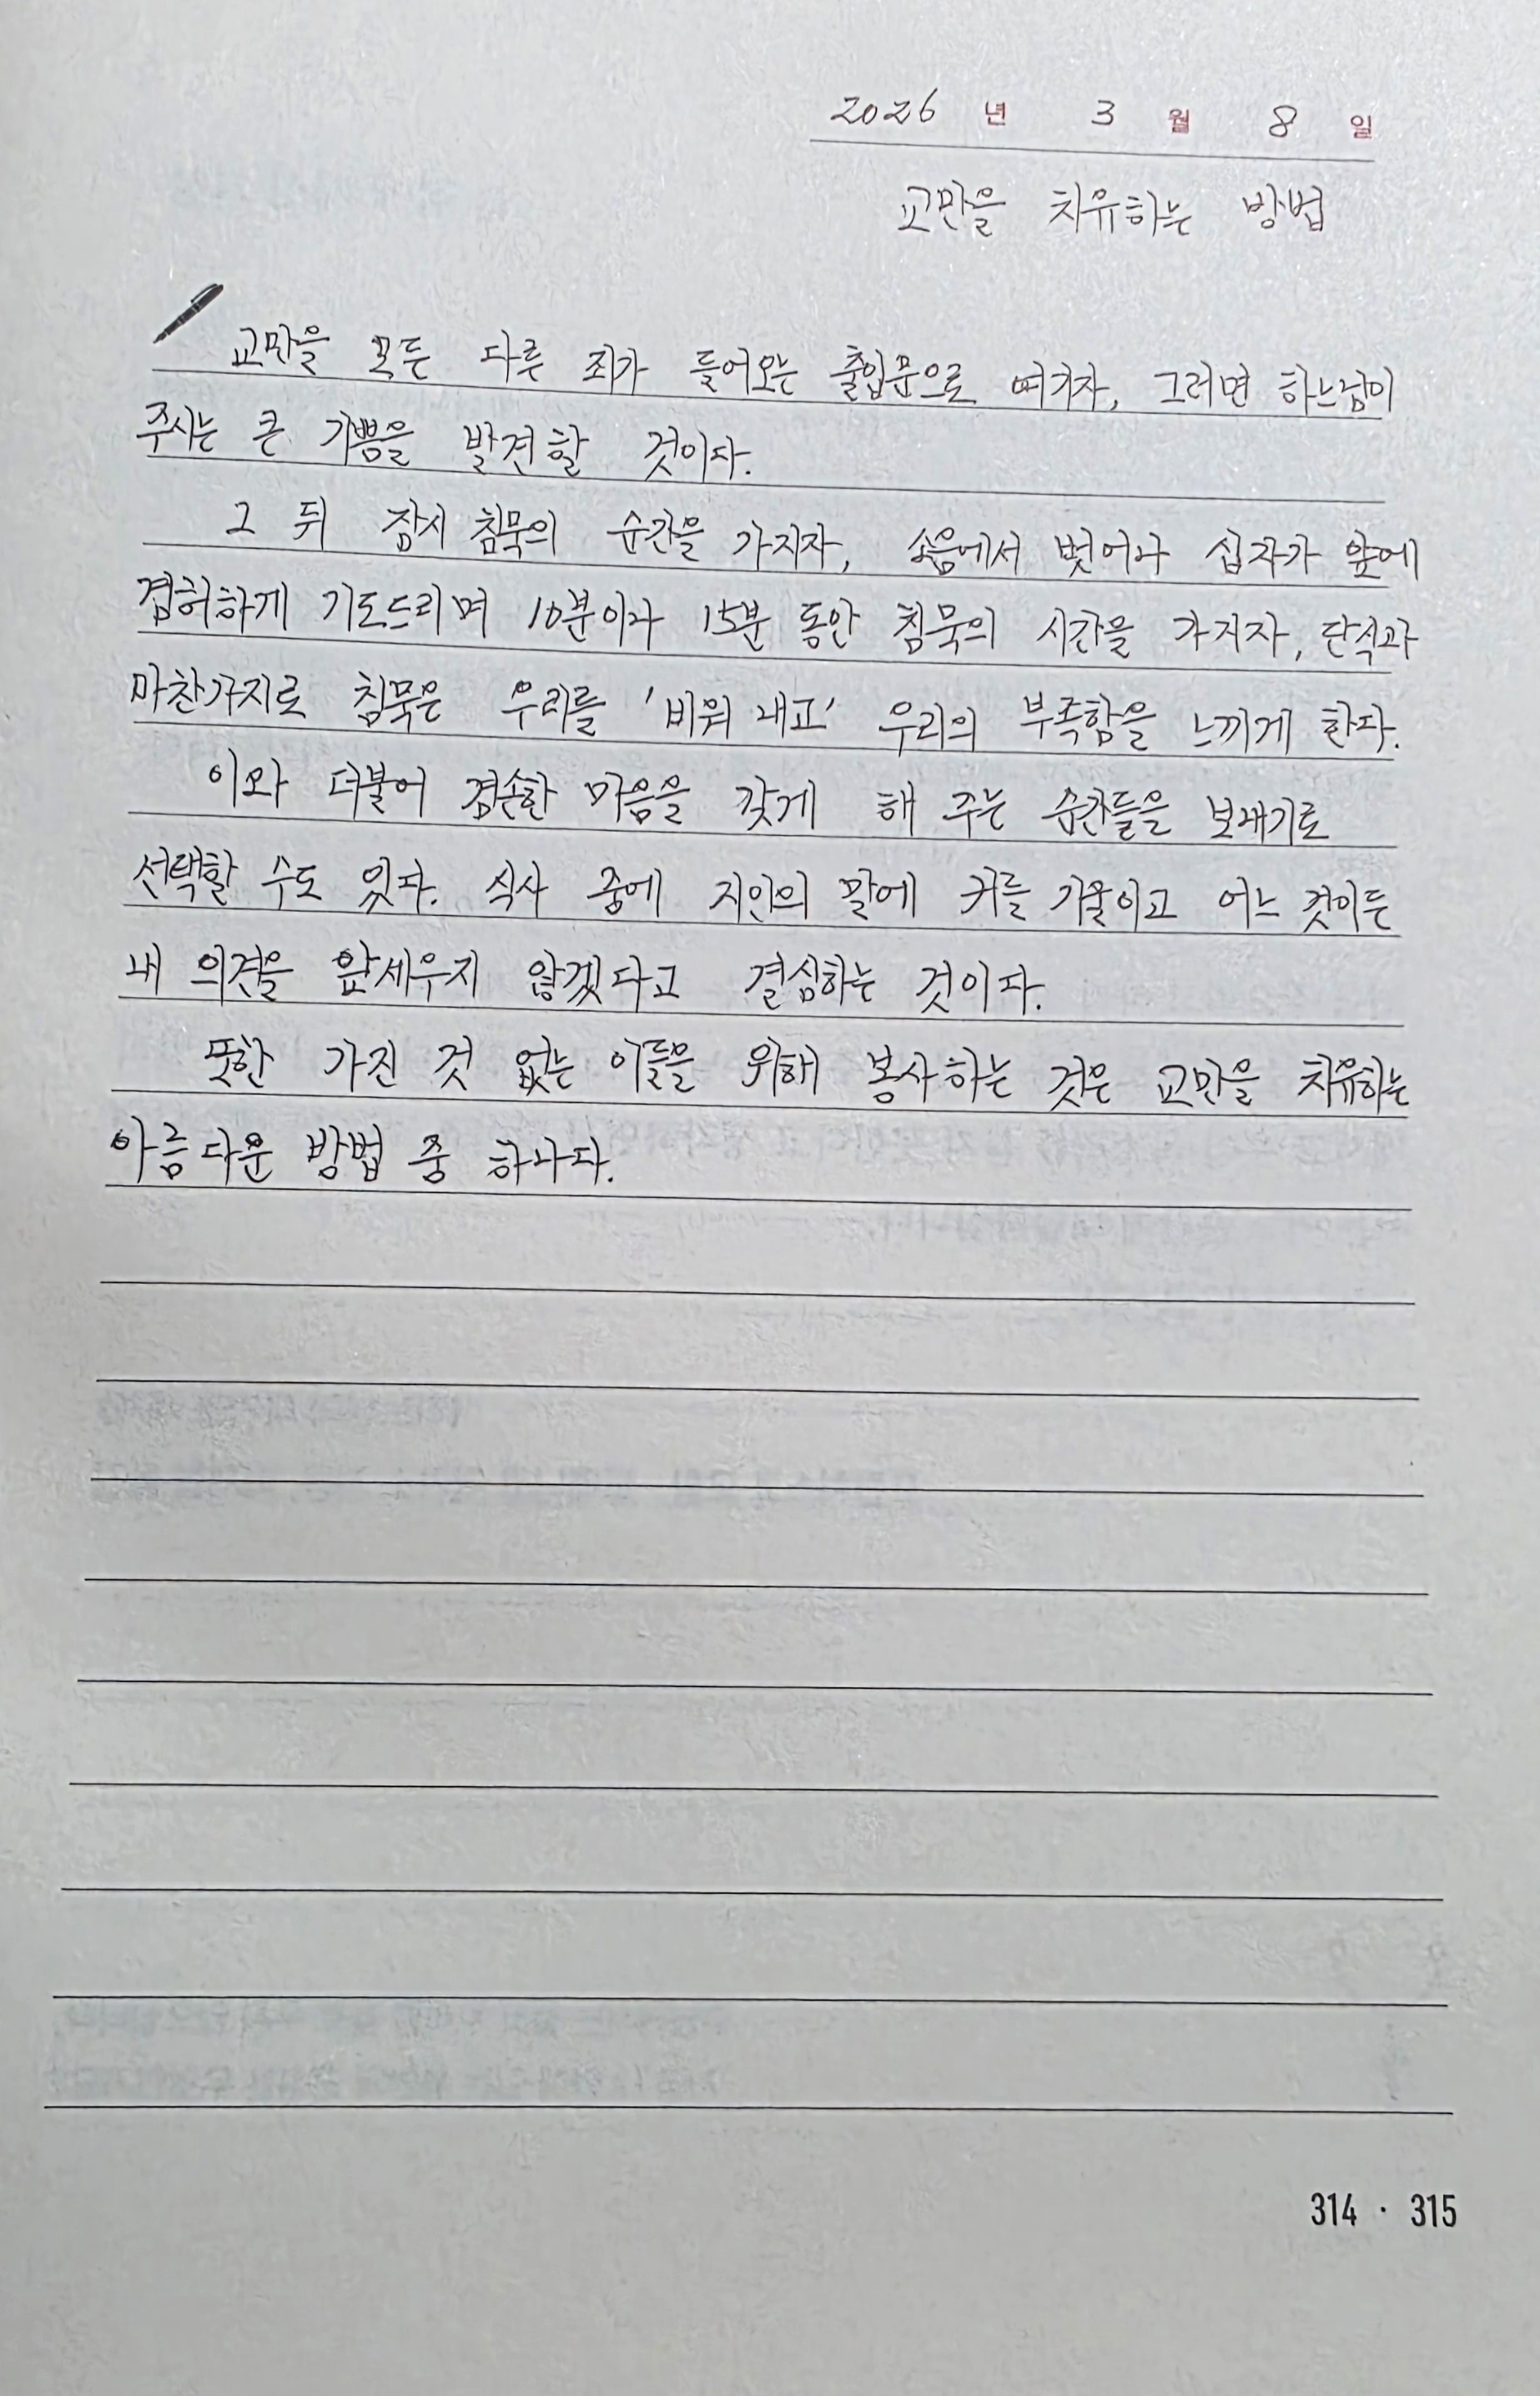 2026 년 3 월 8 일
교만을 치유하는 방법
교만을 모든 다른 죄가 들어오는 출입문으로 여기자, 그러면 하느님이
주시는 큰 기쁨을 발견할 것이다.
그 뒤 잠시 침묵의 순간을 가지자, 소음에서 벗어나 십자가 앞에
겸허하게 기도드리며 10분이나 15분 동안 침묵의 시간을 가지자, 단식과
마찬가지로 침묵은 우리를 '비워 내고' 우리의 부족함을 느끼게 한다.
이와 더불어 겸손한 마음을 갖게 해 주는 순간들을 보내기로
선택할 수도 있다. 식사 중에 지인의 말에 귀를 기울이고 어느 것이든
내 의견을 앞세우지 않겠다고 결심하는 것이다.
또한 가진 것 없는 이들을 위해 봉사하는 것은 교만을 치유하는
아름다운 방법 중 하나다.
314 · 315